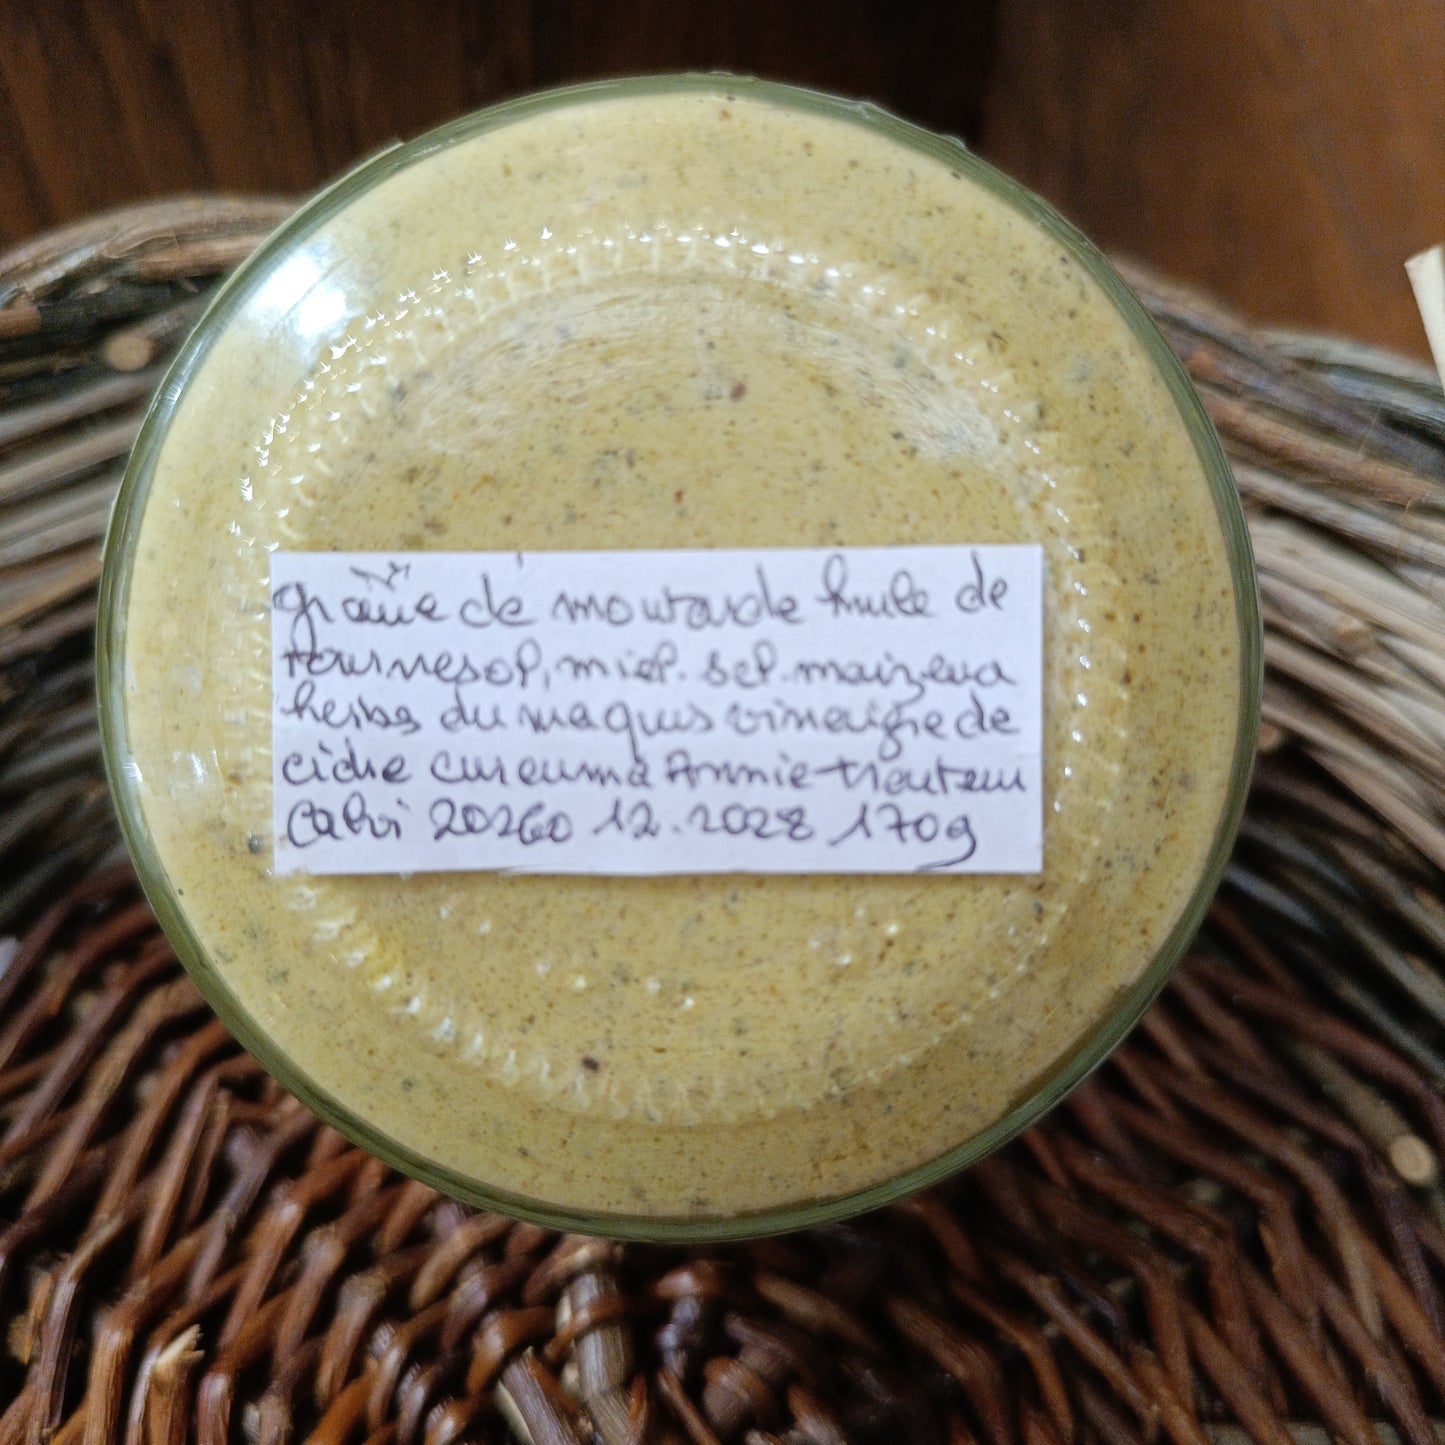 graine de moutarde huile de
tournesol, miel. sel. maizena
herbes du maquis vinaigre de
cidre curcuma Annie traiteur
Calvi 20260 12.2028 170g